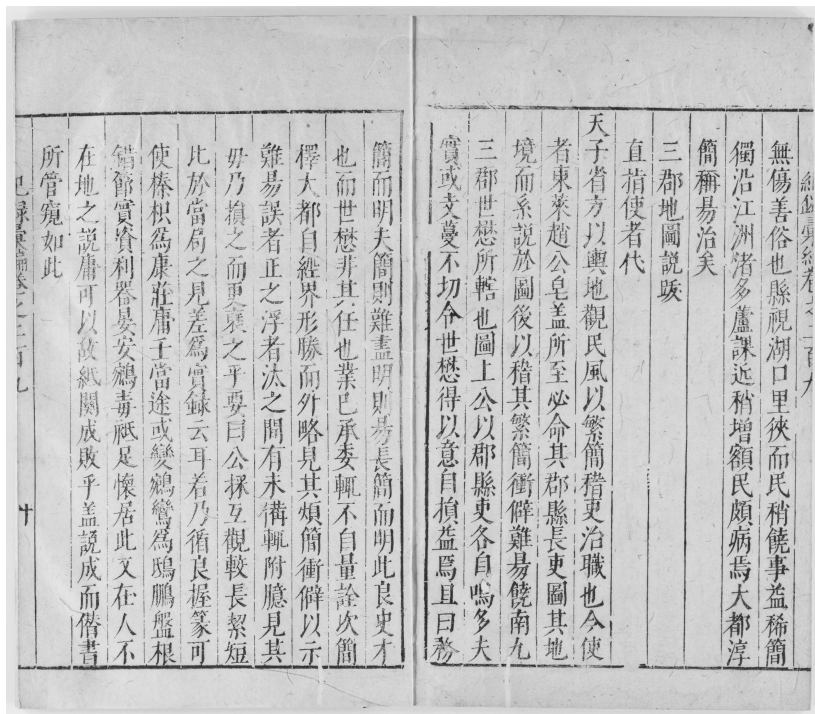 紀錄彙編卷之二百九
無傷善俗也縣視湖口里狹而民稍饒事益稀簡
獨沿江洲渚多蘆課近稍增額民頗病焉大都淳
簡稱易治矣
三郡地圖説跋
直指使者代
天子省方以輿地觀民風以繁簡稽吏治職也今使
者東萊趙公皂盖所至必命其郡縣長吏圖其地
境而系説於圖後以稽其繁簡衝僻難易饒南九
三郡世懋所轄也圖上公以郡縣吏各自嗚多夫
實或支蔓不切令世懋得以意自損益焉且曰務
簡而明夫簡則難盡明則易長簡而明此良史才
也而世懋非其任也業已承委輒不自量詮次簡
擇大都自經界形勝而外略見其煩簡衝僻以示
難易誤者正之浮者汰之間有未備輒附臆見其
毋乃損之而更襄之乎要曰公採互觀較長絜短
比於當局之見差爲實録云耳若乃循良握篆可
使榛枳爲康莊庸壬當途或變鵷鸞爲鴟鵬盤根
錯節實資利器晏安鴆毒祗足懷居此又在人不
在地之説庸可以故紙関成敗乎盖説成而僭書
所管窺如此
紀錄彙編卷之二百九
十